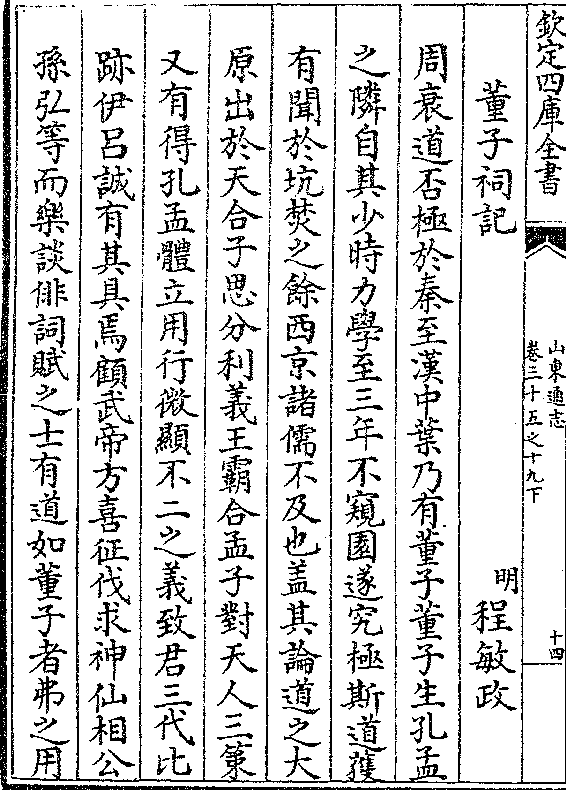 欽定四庫全書
山東通志
卷三十五之十九下
十四
董子祠記
明
程敏政
周衰道否極於秦至漢中葉乃有董子董子生孔孟
之隣自其少時力學至三年不窺園遂究極斯道獲
有聞於坑焚之餘西京諸儒不及也盖其論道之大
原出於天合子思分利義王霸合孟子對天人三策
又有得孔孟體立用行微顯不二之義致君三代比
跡伊吕誠有其具焉顧武帝方喜征伐求神仙相公
孫弘等而樂談俳詞賦之士有道如董子者弗之用